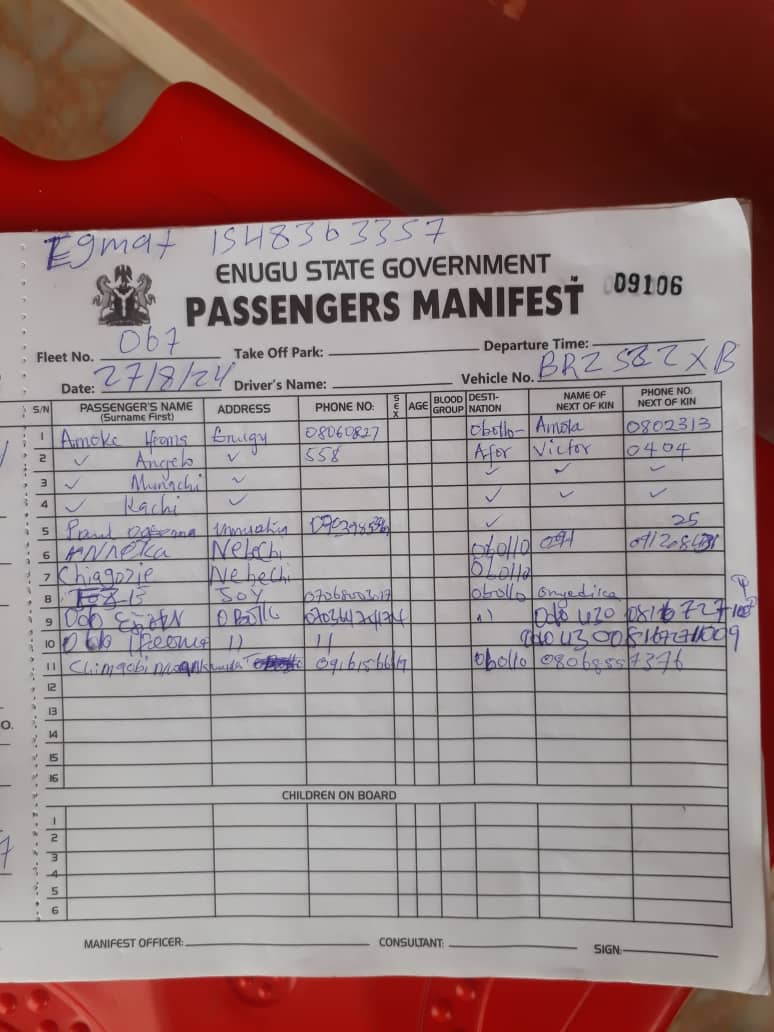 Egmat 1548363357
ENUGU STATE GOVERNMENT
PASSENGERS MANIFEST 09106
Fleet No. 067 Take Off Park: Departure Time:
Date: 27/8/24 Driver's Name: Vehicle No. BRZ 582 XB
S/N PASSENGER'S NAME (Surname First) ADDRESS PHONE NO: SEX AGE BLOOD GROUP DESTI-NATION NAME OF NEXT OF KIN PHONE NO: NEXT OF KIN
1 Amoke Enugu 08060827 Obollo- Amoka 0802313
2 ✓ Angelo ✓ 558 Afor Victor 0404
3 ✓ Munachi ✓ ✓ ✓ ✓
4 ✓ Kachi ✓ ✓ ✓ ✓
5 Paul ✓ 25
6 Nneka Nelechi Obollo
7 Chiagozie Nebechi Obollo
8 Joy Obollo onyedika
9 Odo Obollo Odo uzo
10 Odo Ifeoma 11 11 Odo uzo
11 Obollo 08068557376
12
13
14
15
16
CHILDREN ON BOARD
1
2
3
4
5
6
MANIFEST OFFICER: CONSULTANT: SIGN: